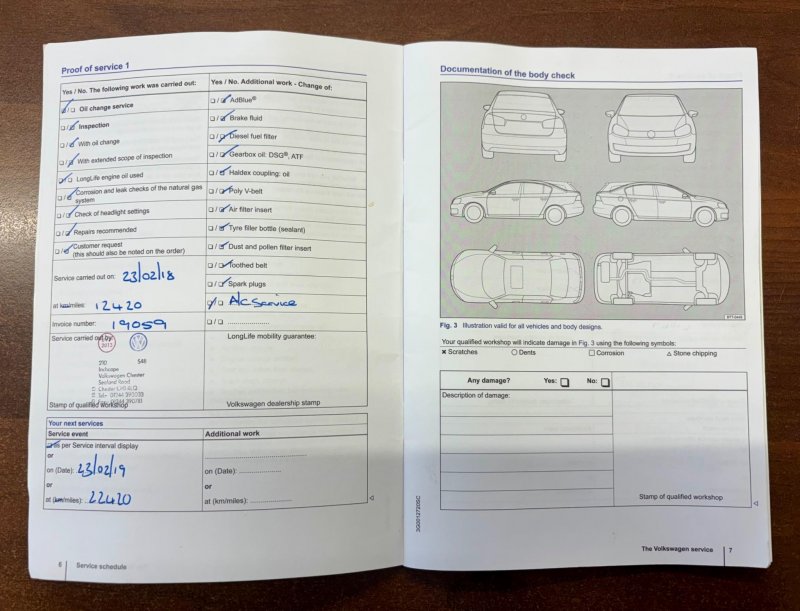 Proof of service 1
Yes / No. The following work was carried out:
☑/☐ Oil change service
☐/☑ Inspection
☐/☑ With oil change
☐/☑ With extended scope of inspection
☑/☐ LongLife engine oil used
☐/☑ Corrosion and leak checks of the natural gas
system
☐/☑ Check of headlight settings
☐/☑ Repairs recommended
☐/☑ Customer request
(this should also be noted on the order)
Service carried out on: 23/02/18
at km/miles: 12420
Invoice number: 19059
Service carried out by:
2012
210 548
Inchcape
Volkswagen Chester
Sealand Road
Chester CH1 4LQ
Stamp of qualified workshop
Yes / No. Additional work - Change of:
☐/☑ AdBlue®
☐/☑ Brake fluid
☐/☑ Diesel fuel filter
☐/☑ Gearbox oil: DSG®, ATF
☐/☑ Haldex coupling: oil
☐/☑ Poly V-belt
☐/☑ Air filter insert
☐/☑ Tyre filler bottle (sealant)
☐/☑ Dust and pollen filter insert
☐/☑ Toothed belt
☐/☑ Spark plugs
☑/☐ A/c Service
☐/☐ ......................
LongLife mobility guarantee:
Volkswagen dealership stamp
Your next services
Service event
☑ as per Service interval display
or
on (Date): 23/02/19
or
at (km/miles): 22420
Additional work
on (Date): ......................
or
at (km/miles): ......................
6 Service schedule
Documentation of the body check
Fig. 3 Illustration valid for all vehicles and body designs.
Your qualified workshop will indicate damage in Fig. 3 using the following symbols:
✖ Scratches ○ Dents □ Corrosion △ Stone chipping
Any damage? Yes: ☐ No: ☐
Description of damage:
Stamp of qualified workshop
3G0012720SC
The Volkswagen service 7